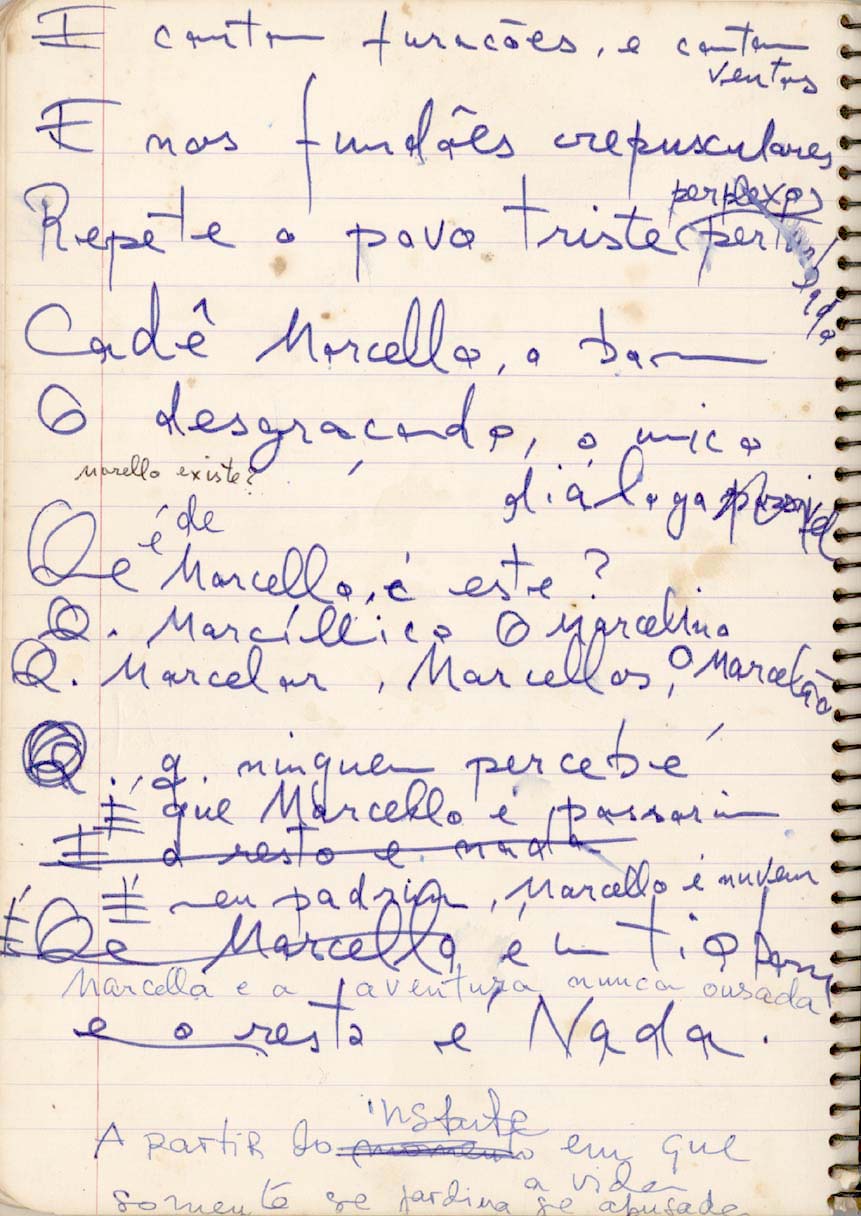 E cantam furacões, e cantam
ventos
E nos fundões crepusculares
perplexos
Repete o povo triste
Cadê Marcello, o bom
O desgraçando, o unico
marello existe?
dialoga possivel
é de
Marcello, é este?
O. Marcíllico O Marcelino
O. Marcelar, Marcellos, O Marcelão
q. ninguem percebe
É que Marcello é passarim
E o resto e nada
É meu padrim, Marcello é nuvem
É Marcello, é um tio bom
Marcella e a aventura nunca ousada
e o resto é Nada.
instante
A partir do momento em que
a vida
somente se jardina se abusada